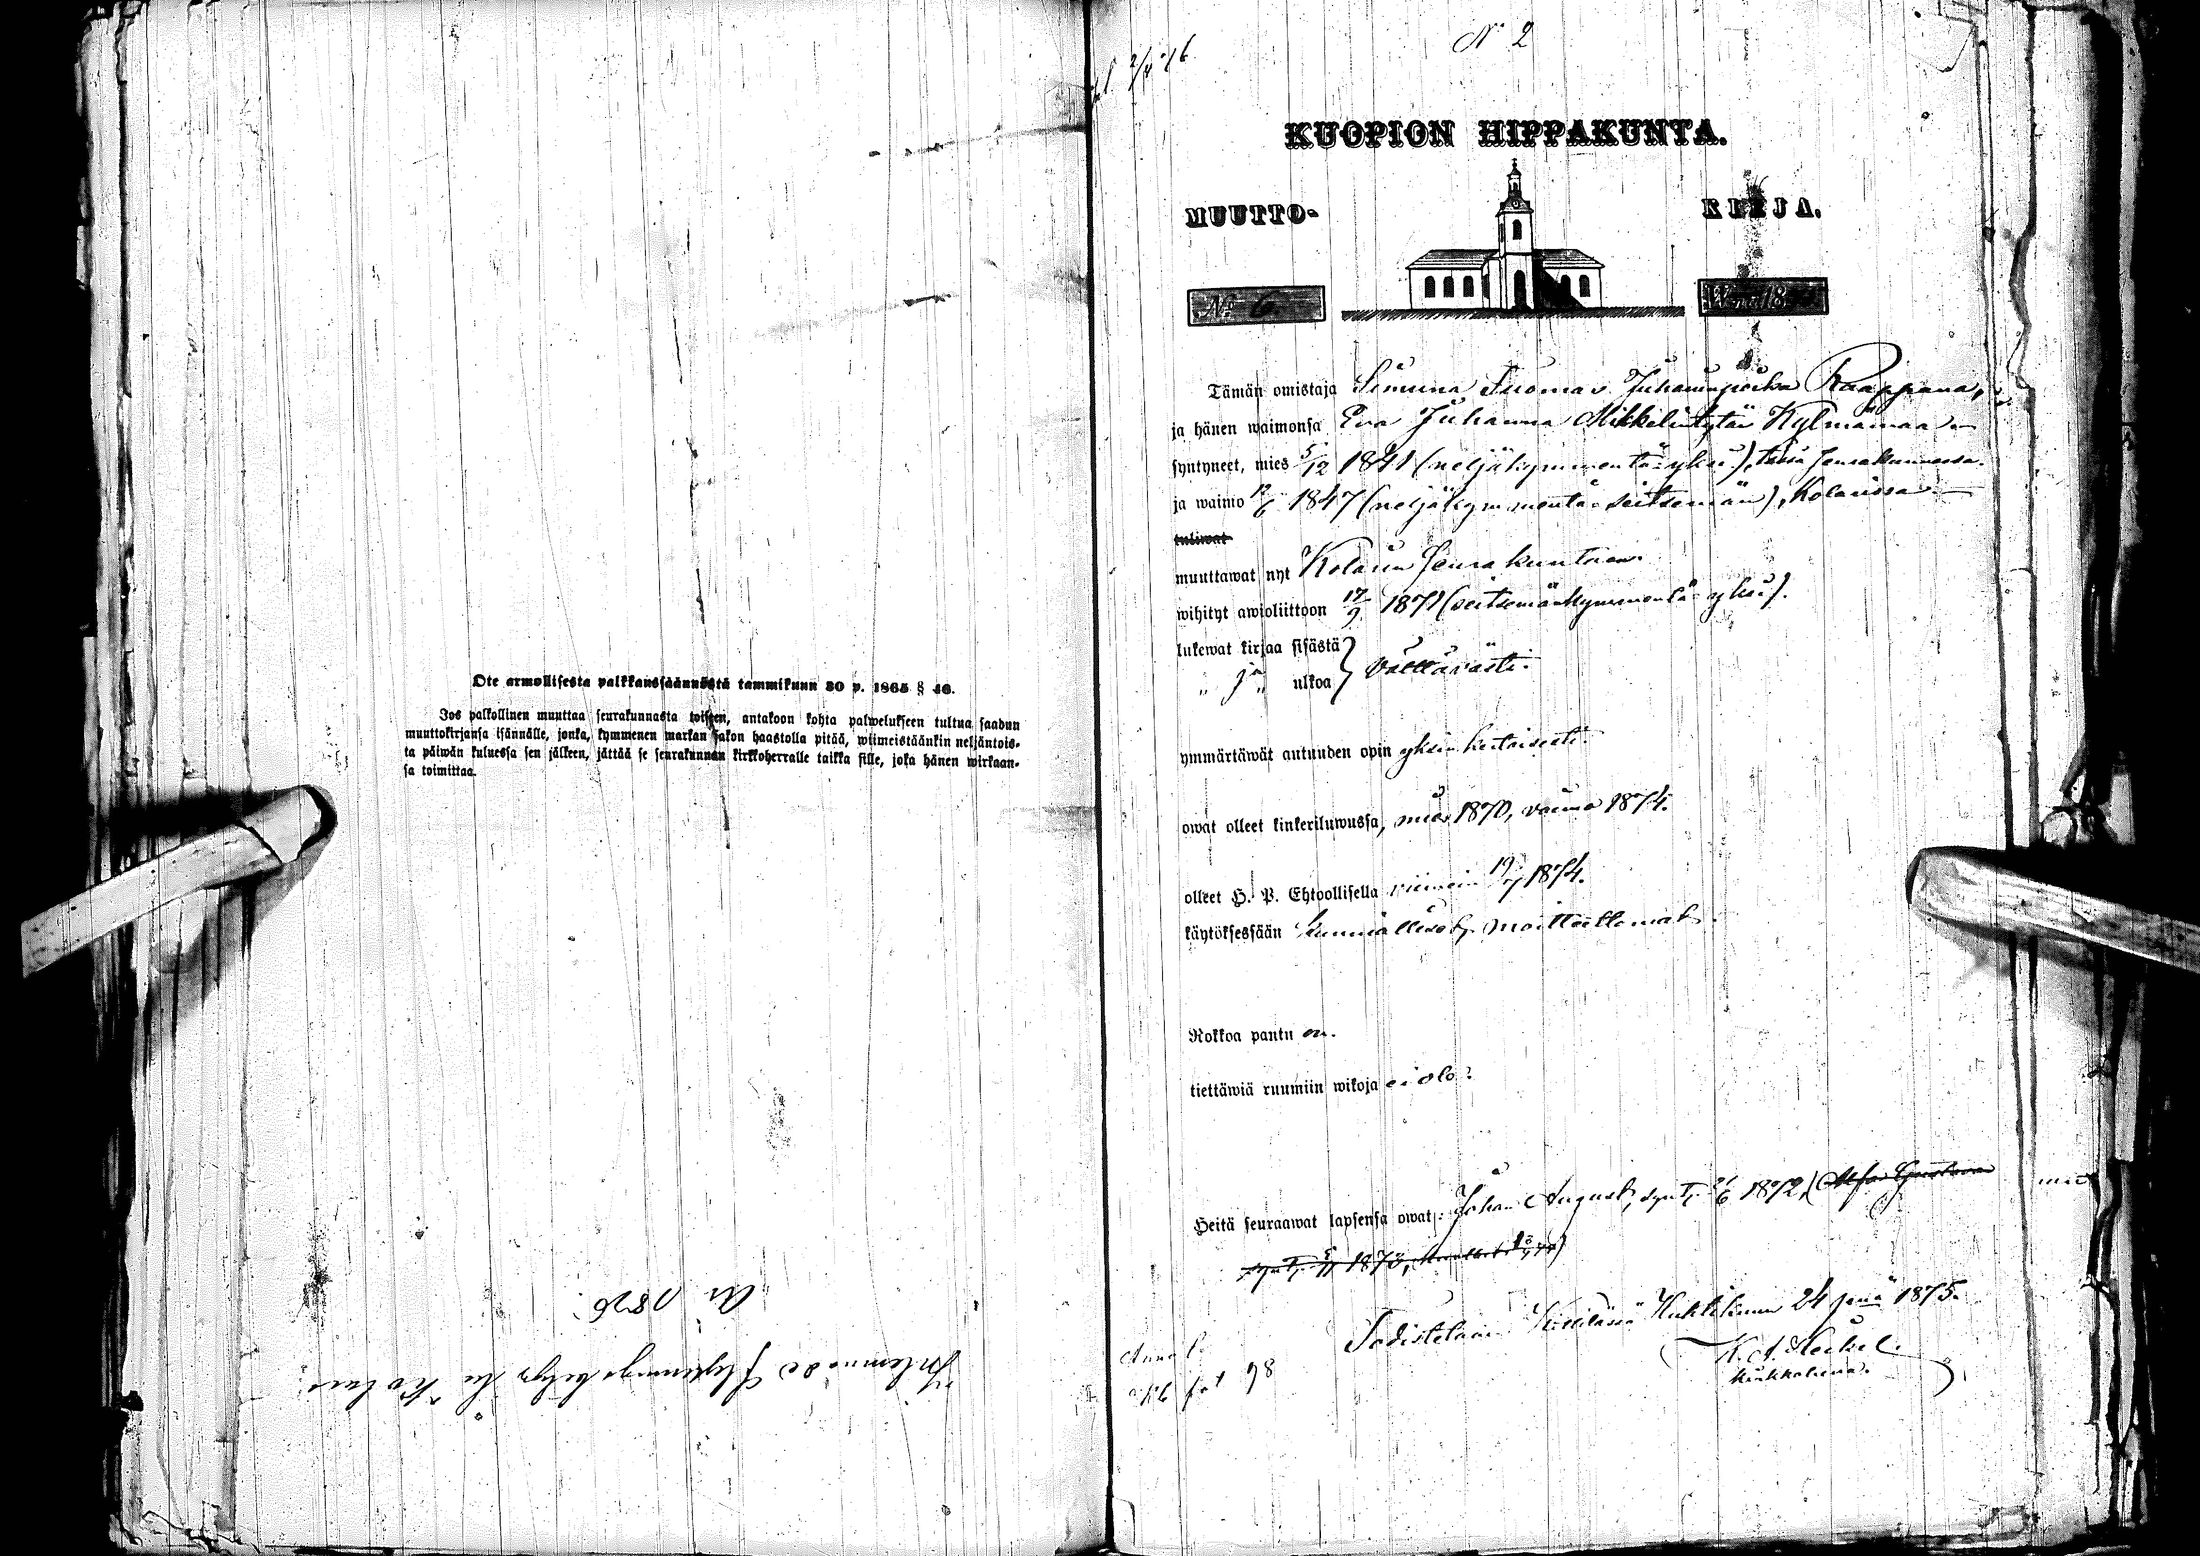 Ote armollisesta palkkaussäännöstä tammikuun 30 p. 1865 § 46.
Jos palkollinen muuttaa seurakunnasta toiseen, antakoon kohta palwelukseen tultua saadun
muuttokirjansa isännälle, jonka, kymmenen markan sakon haastolla pitää, wiimeistäänkin neljäntois-
ta päiwän kuluessa sen jälkeen, jättää se seurakunnan kirkkoherralle taikka sille, joka hänen wirkaan-
sa toimittaa.
År 1876.
Inlemnade Flyttningsbetyg
N 2
KUOPION HIPPAKUNTA.
MUUTTO- KIRJA.
No 6. W:na 18
Tämän omistaja Simuna Tuomas Juhananpoika Raappana,
ja hänen waimonsa Eva Juhanna Mikkelintytär Kylmämaa
syntyneet, mies 5/12 1841 (neljäkymmentä-yksi), tässä seurakunnassa.
ja waimo 12/6 1847 (neljäkymmentä-seitsemän), Kolarissa
tuliwat
muuttawat nyt Kolarin Seurakuntaan.
wihityt awioliittoon 17/9 1871 (seitsemänkymmentä-yksi).
lukewat kirjaa sisästä
„ ja „ ulkoa } välttävästi.
ymmärtäwät autuuden opin yksinkertaisesti.
owat olleet kinkeriluwussa, mies 1870, vaimo 1874.
olleet H. P. Ehtoollisella viimein 19/7 1874.
käytöksessään kunnialliset, moitteettomat.
Rokkoa pantu on.
tiettäwiä ruumiin wikoja ei ole.
Heitä seuraawat lapsensa owat: Johan August, synt. 21/6 1872, (
synt. 1873,
Todistetaan Kittilässä Huhtikuun 24 p:nä 1875.
K. A. Heikel.
kirkkoherra.
98